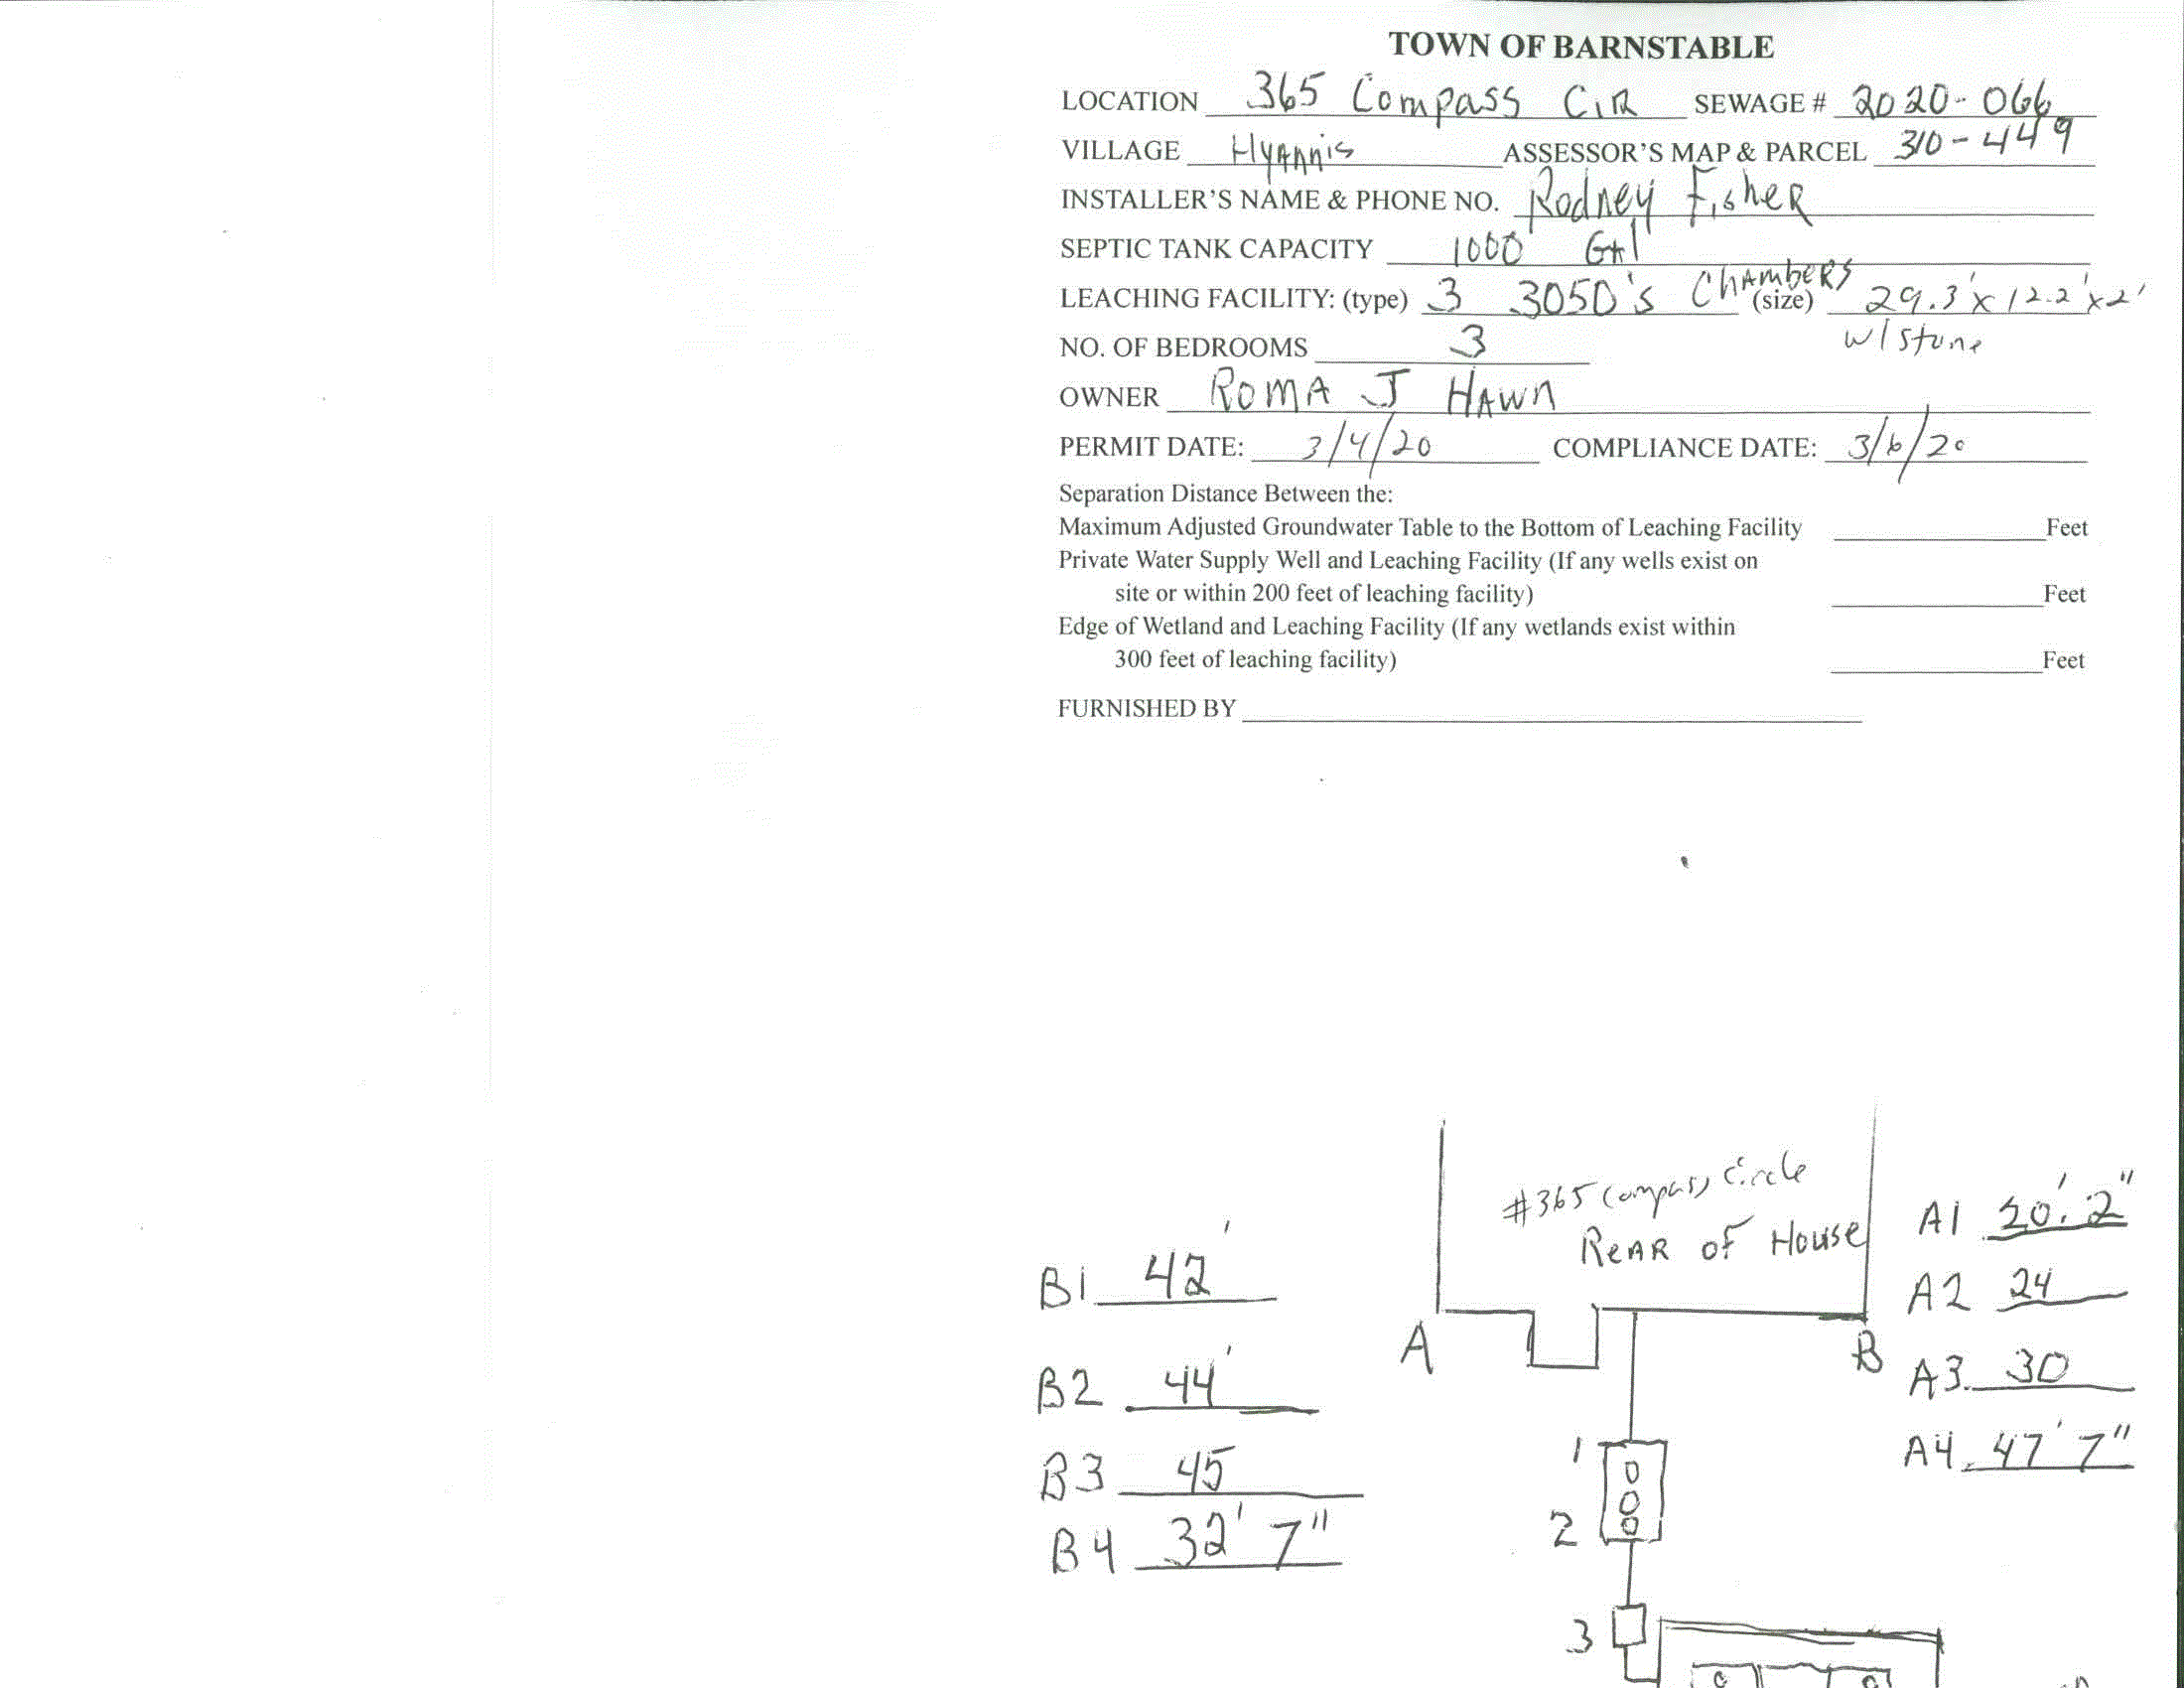 TOWN OF BARNSTABLE
LOCATION 365 Compass Cir SEWAGE # 2020-066
VILLAGE Hyannis ASSESSOR'S MAP & PARCEL 310-449
INSTALLER'S NAME & PHONE NO. Rodney Fisher
SEPTIC TANK CAPACITY 1000 Gal
LEACHING FACILITY: (type) 3 3050's Chambers (size) 29.3' x 12.2' x 2'
w/ Stone
NO. OF BEDROOMS 3
OWNER Roma J Hawn
PERMIT DATE: 3/4/20 COMPLIANCE DATE: 3/6/20
Separation Distance Between the:
Maximum Adjusted Groundwater Table to the Bottom of Leaching Facility Feet
Private Water Supply Well and Leaching Facility (If any wells exist on
site or within 200 feet of leaching facility) Feet
Edge of Wetland and Leaching Facility (If any wetlands exist within
300 feet of leaching facility) Feet
FURNISHED BY
#365 Compass Circle
Rear of House
A
B
A1 20'. 2"
A2 24
A3 30
A4 47' 7"
B1 42'
B2 44'
B3 45
B4 32' 7"
1
2
3